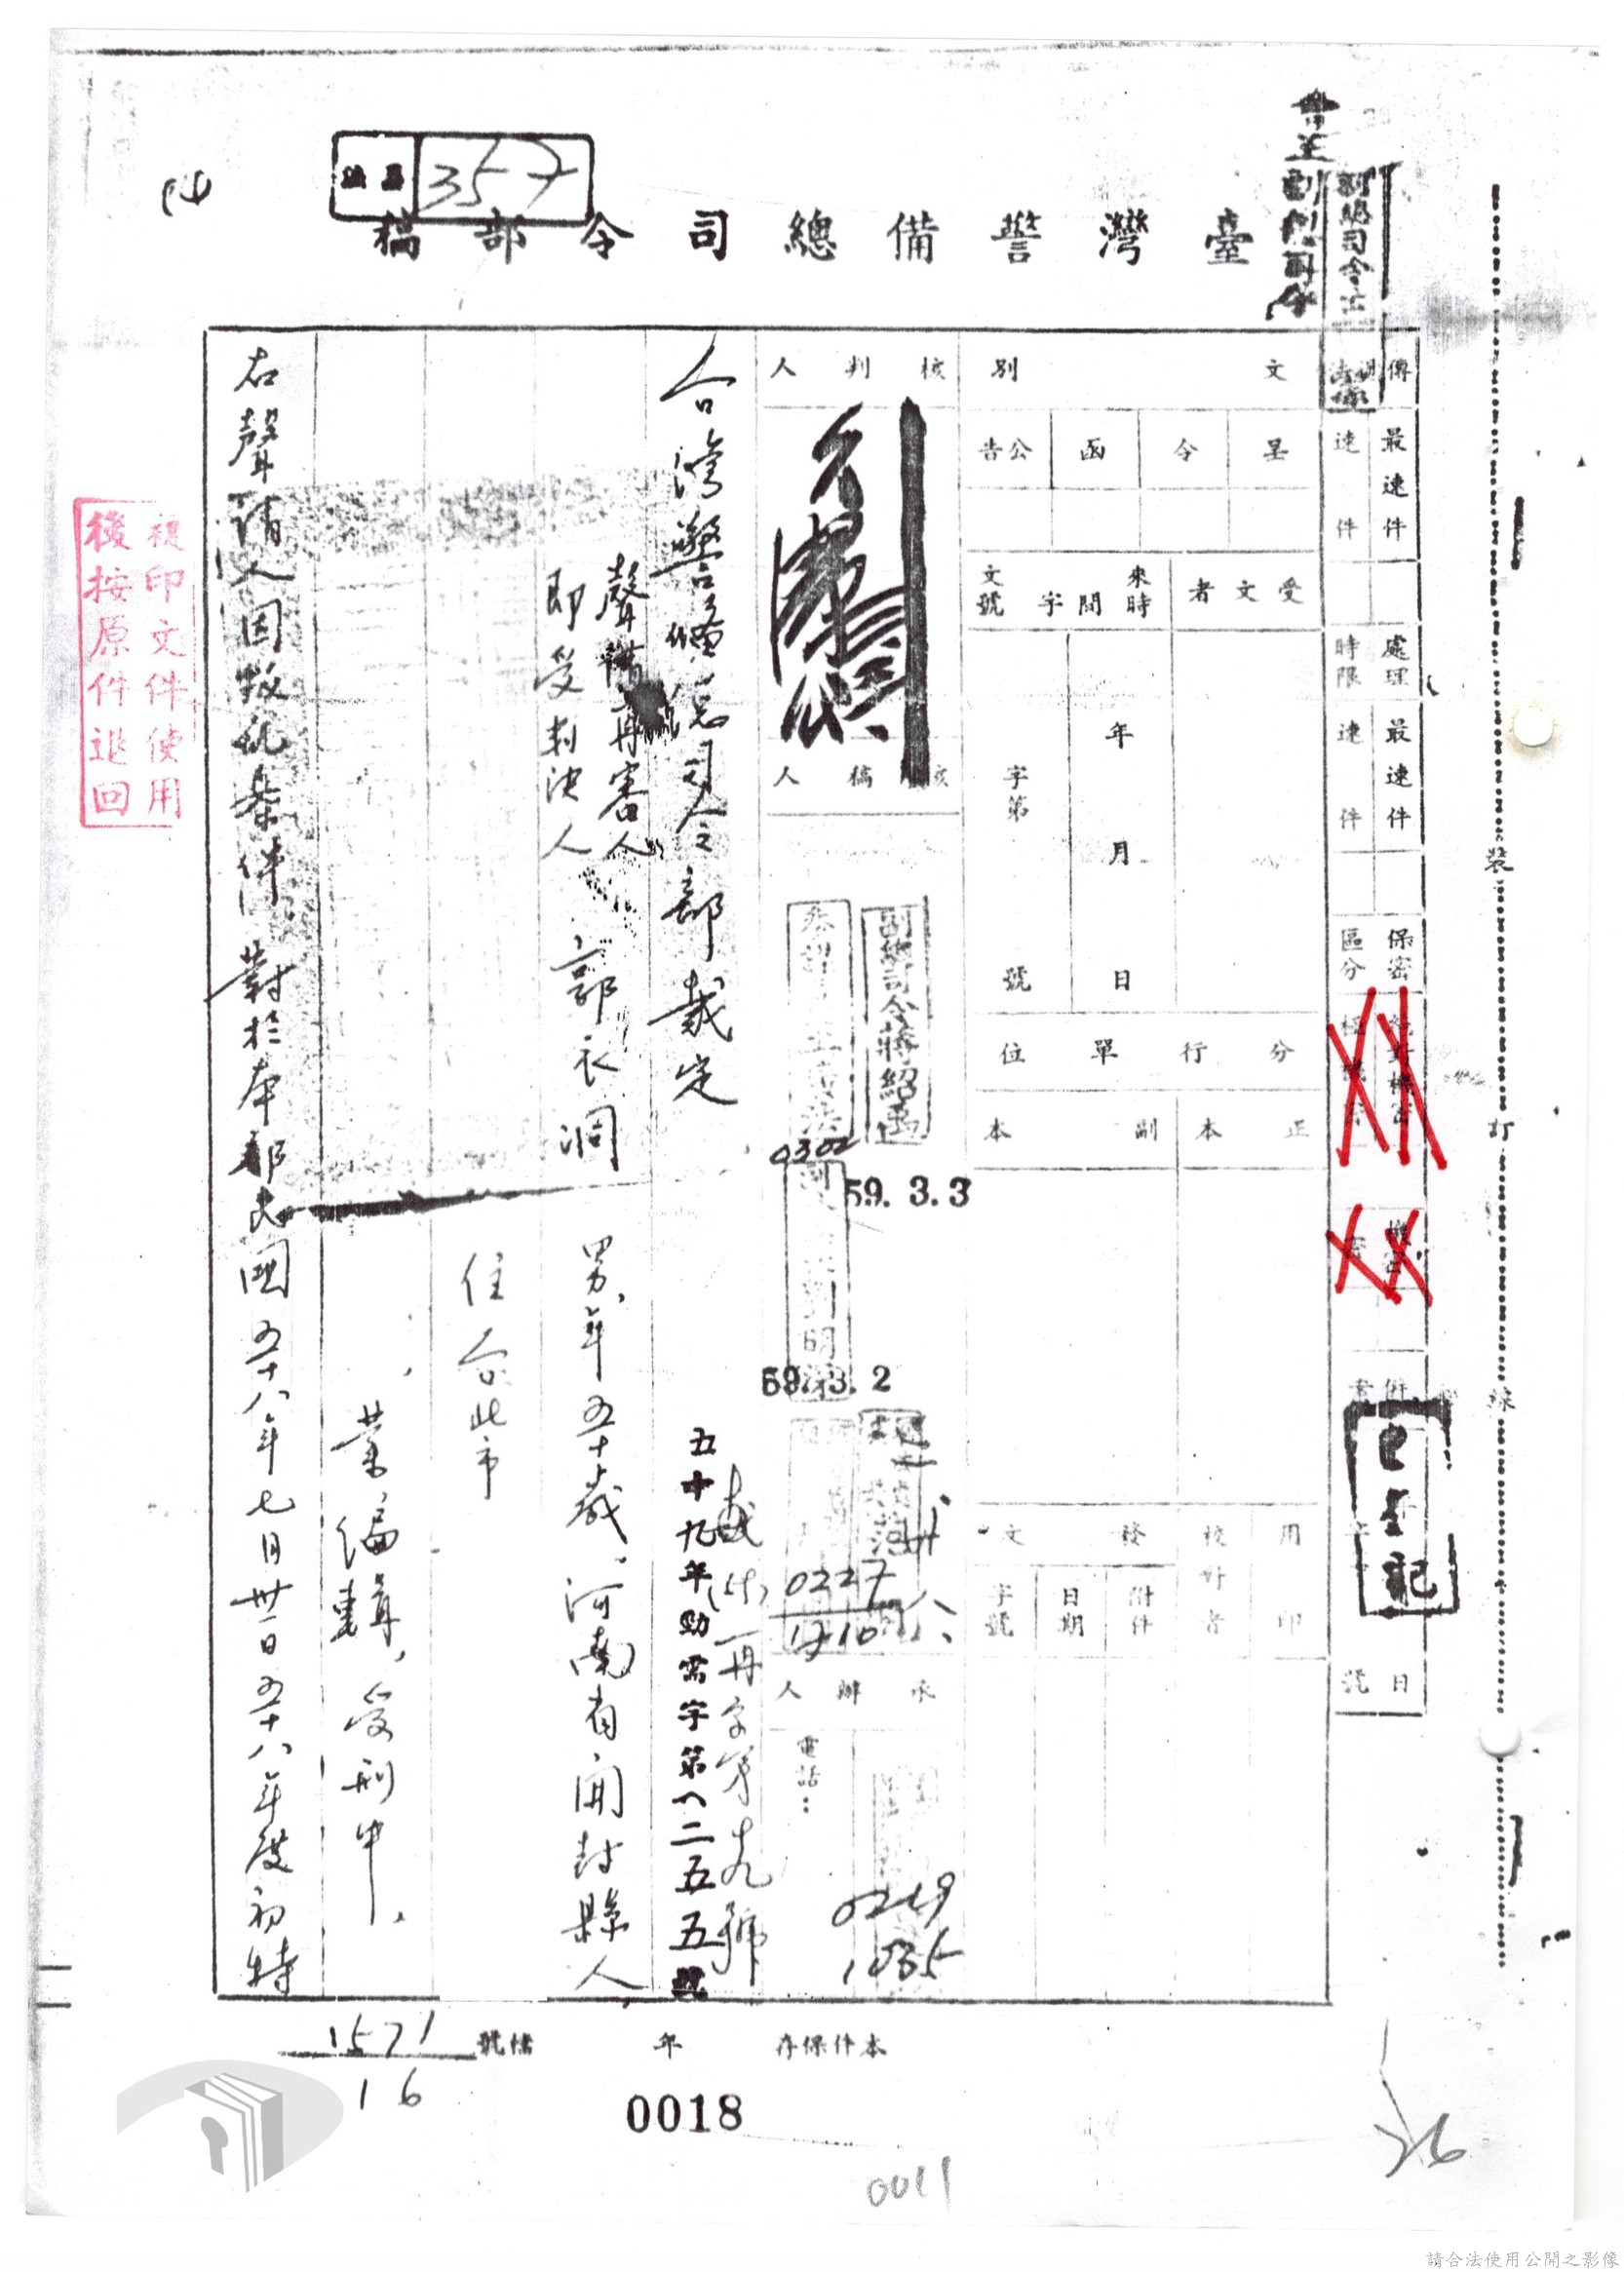 357
臺灣警備總司令部稿
副總司令
傳
最速件
速件
處理時限
最速件
速件
保密區分
文別
呈
令
函
公告
受文者
來文時間字號
年 月 日
字第 號
分行單位
正本
副本
用印
校對者
發文
附件
日期
字號
日
號
已登記
裝
訂
線
核判人
核稿人
副總司令蔣紹禹
0302
59.3.3
59.3.2
0227
1710
承辦人
電話：
0229
1035
台灣警備總司令部裁定
五十九年勁需字第一二五五號
再字第十九號
聲請再審人
即受判決人
郭衣洞
男，年五十歲，河南省開封縣人
住台北市
業編輯，受刑中。
右聲請人因叛亂案件，對於本部民國五十八年七月卅一日五十八年度初特
複印文件使用
後按原件退回
本件保存 年
檔號
1571
16
0018
0011
26
請合法使用公開之影像